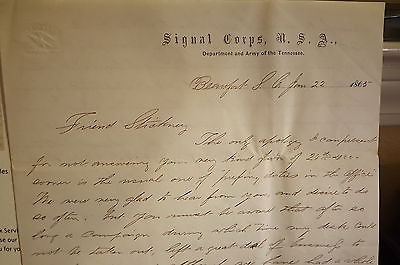 Signal Corps, U. S. A.,
Department and Army of the Tennessee.
Beaufort S. C. Jan 22 1865
Friend Stickney
The only apology & complement
for not answering your very kind favor of 24th
is the usual one of pressing duties in the office
We were very glad to hear from you, and desire to do
so often. But you must be aware that after so
long a campaign during which time my desk could
not be taken out, left a great deal of business to
les
Servi
se our
you